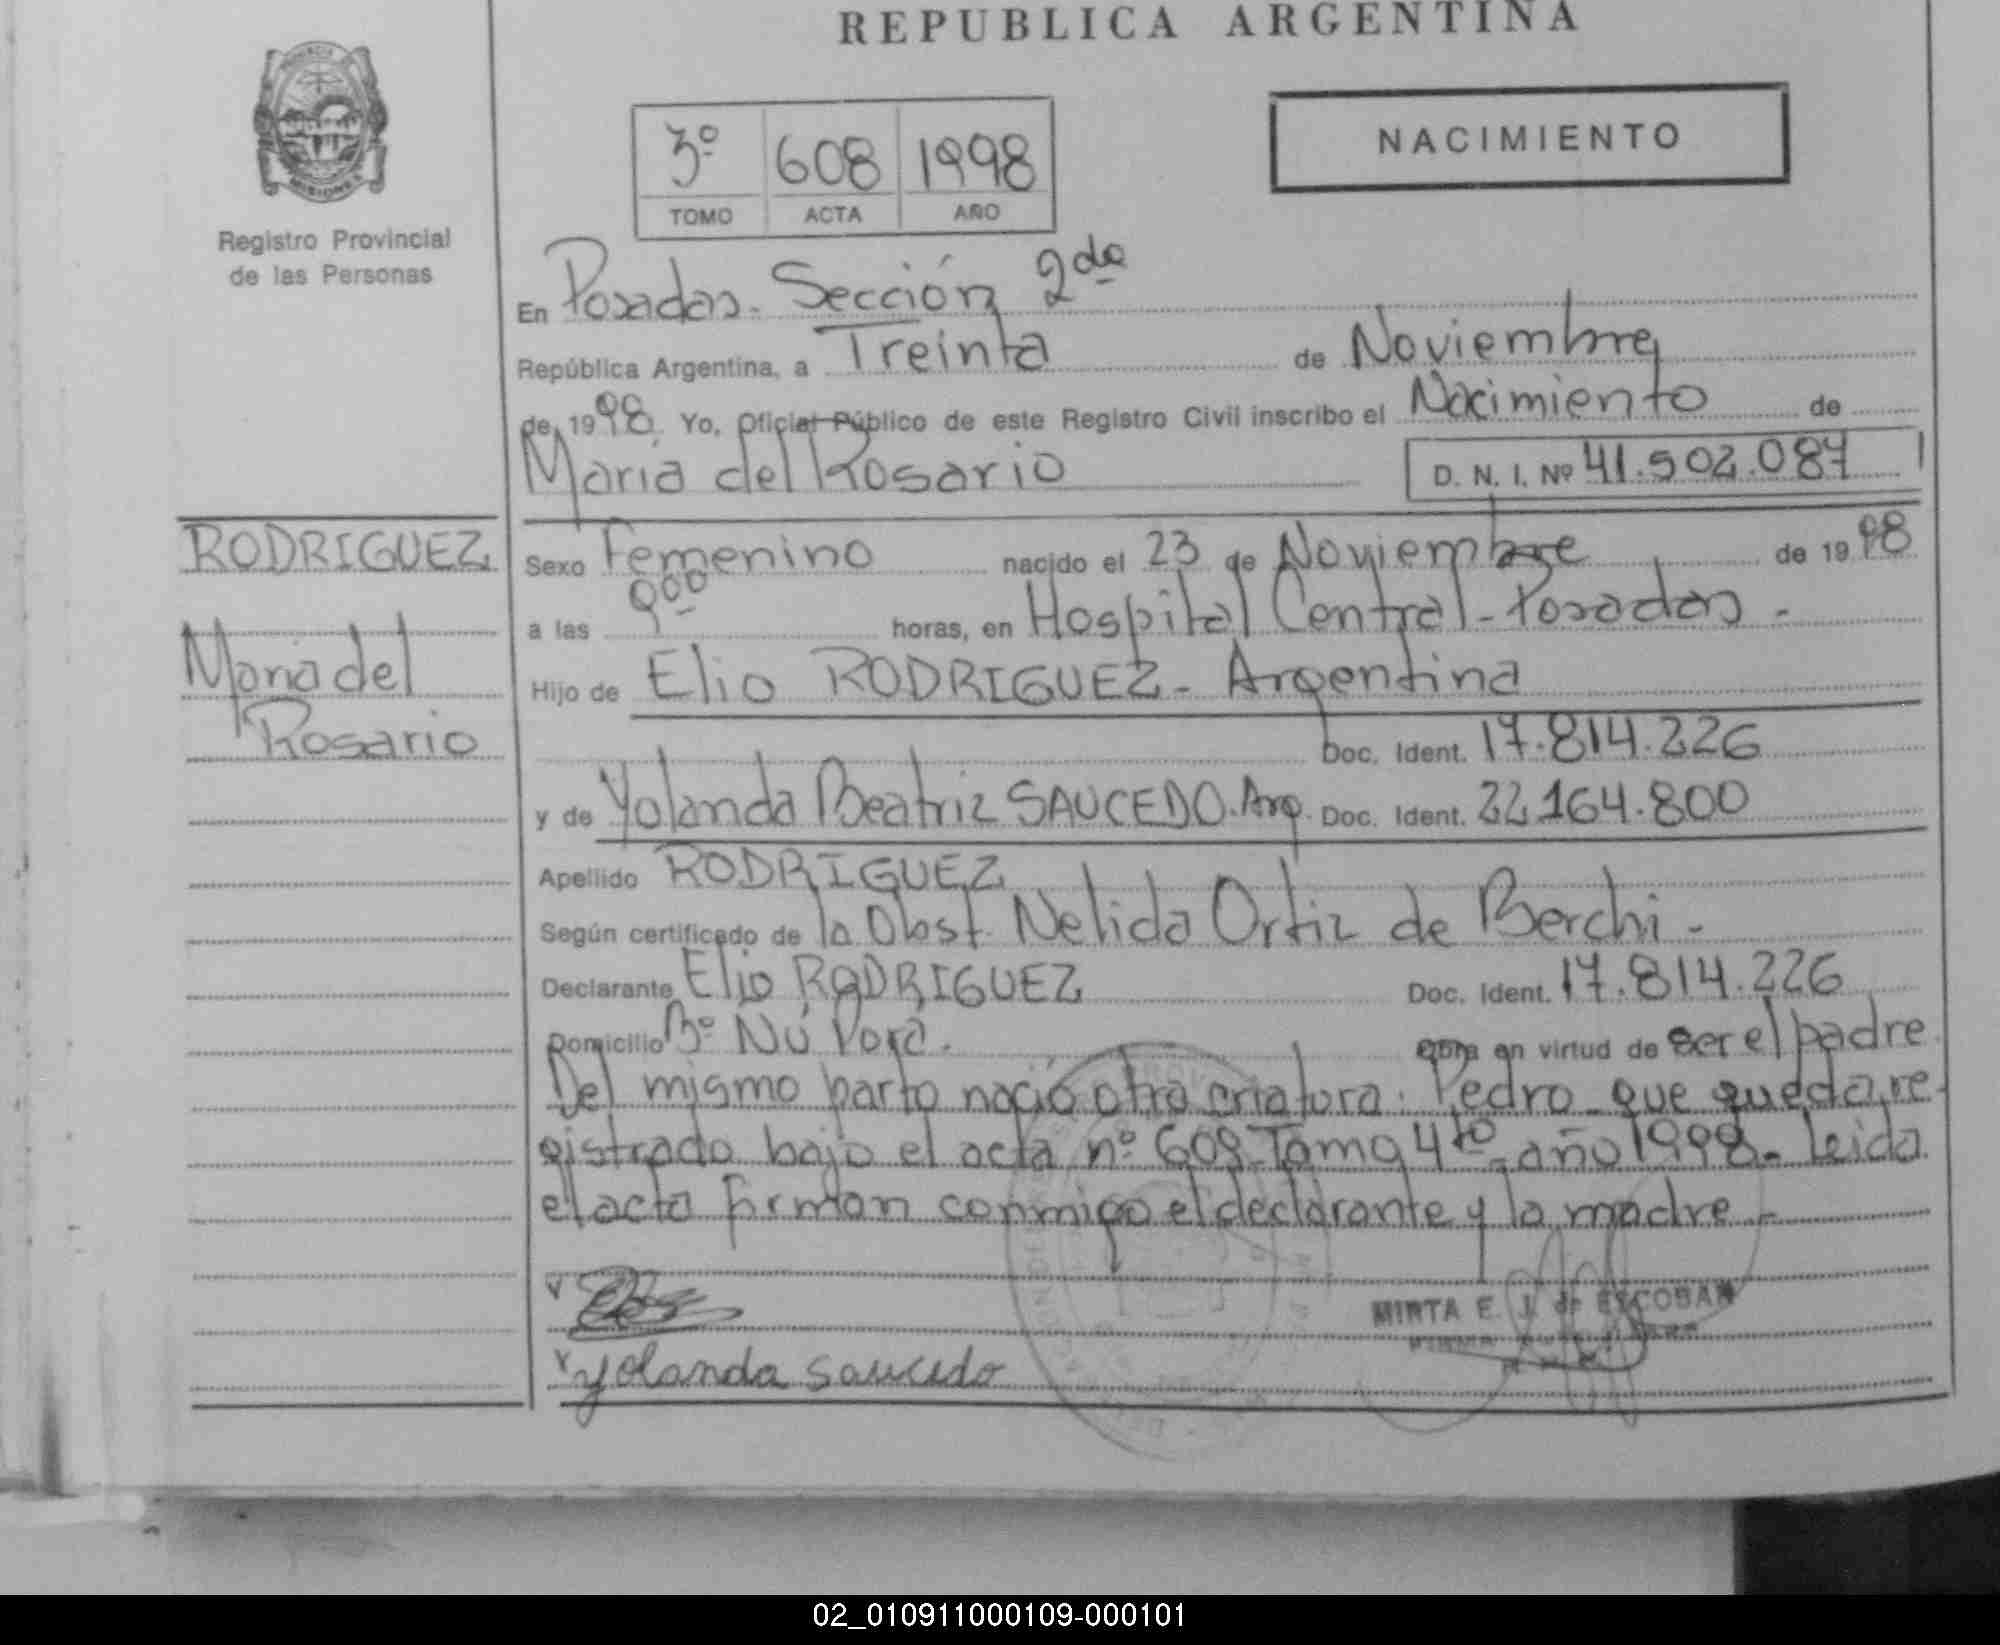 REPUBLICA ARGENTINA
MISIONES
Registro Provincial
de las Personas
3º 608 1998
TOMO ACTA AÑO
NACIMIENTO
En Posadas. Sección 2da
República Argentina, a Treinta de Noviembre
de 1998. Yo, Oficial Público de este Registro Civil inscribo el Nacimiento de
Maria del Rosario D. N. I. Nº 41.502.087
RODRIGUEZ
Maria del
Rosario
Sexo Femenino nacido el 23 de Noviembre de 1998
a las 900 horas, en Hospital Central - Posadas -
Hijo de Elio RODRIGUEZ - Argentina
Doc. Ident. 17.814.226
y de Yolanda Beatriz SAUCEDO. Arg. Doc. Ident. 22.164.800
Apellido RODRIGUEZ
Según certificado de la Obst. Nelida Ortiz de Berchi -
Declarante Elio RODRIGUEZ Doc. Ident. 17.814.226
Domicilio Bº Nú Porá. obra en virtud de ser el padre
Del mismo parto nació otra criatura. Pedro que queda re-
gistrado bajo el acta nº 608 Tomo 4to año 1998 - Leida
el acta firman conmigo el declarante y la madre -
MIRTA E. J. de ESCOBAR
x Yolanda Saucedo
02_010911000109-000101